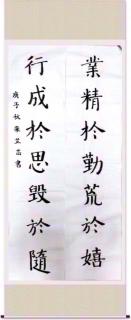 業精於勤荒於嬉
行成於思毀於隨
庚子秋朱芝芸書